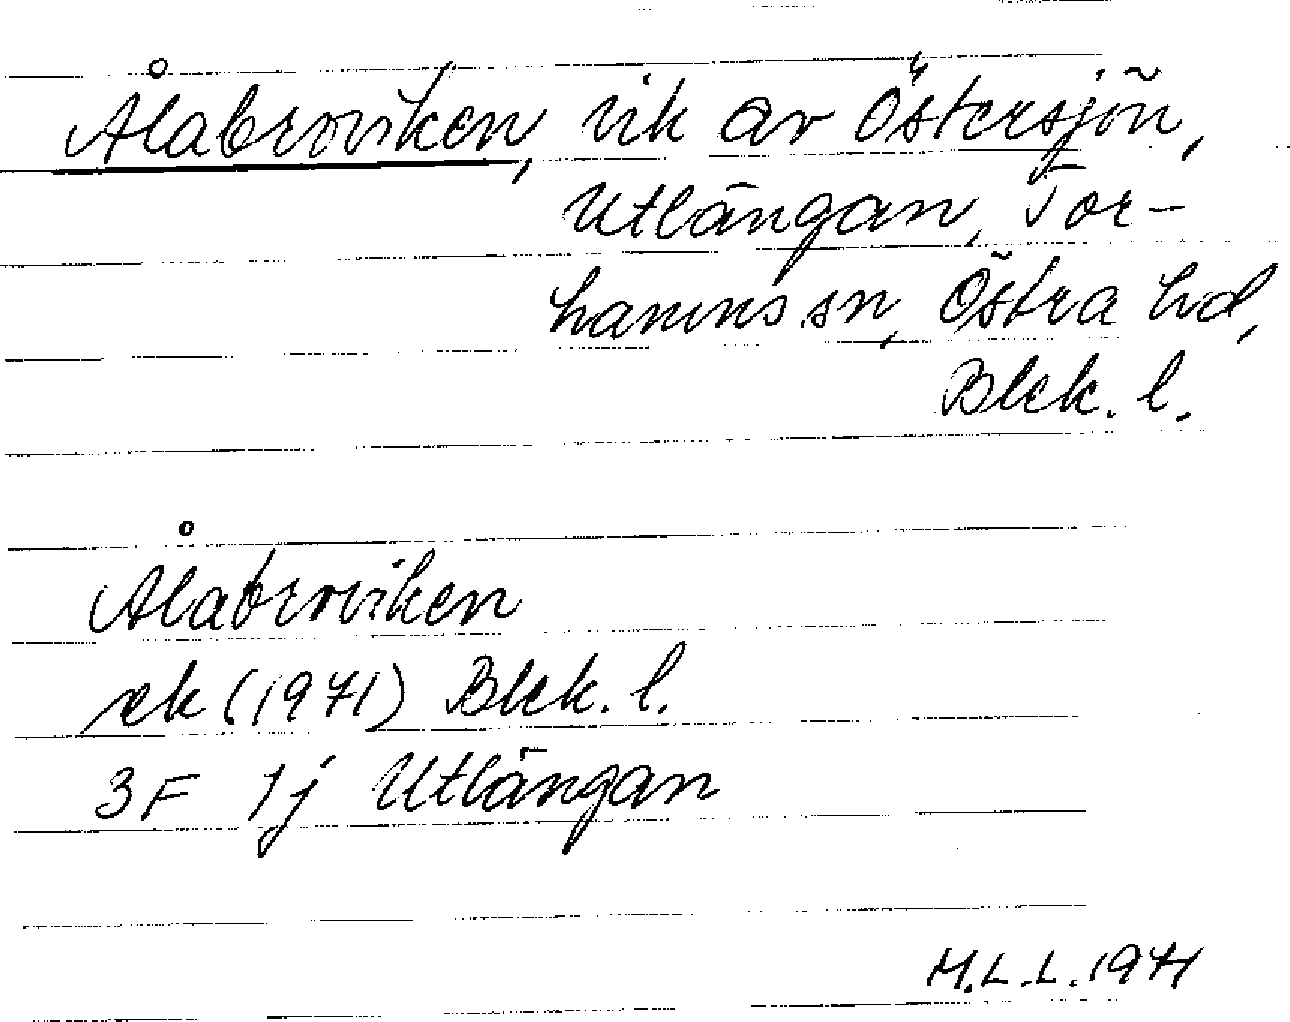 Ålabroviken, vik av Östersjön,
Utlängan, Tor-
hamns sn, Östra hd,
Blek. l.
Ålabroviken
ek (1971) Blek. l.
3F 1j Utlängan
M.L.L. 1971